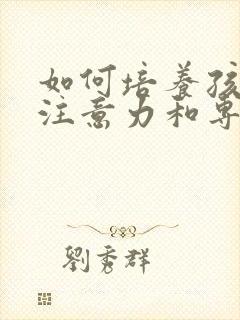 如何培養孩
注意力和專
劉秀群